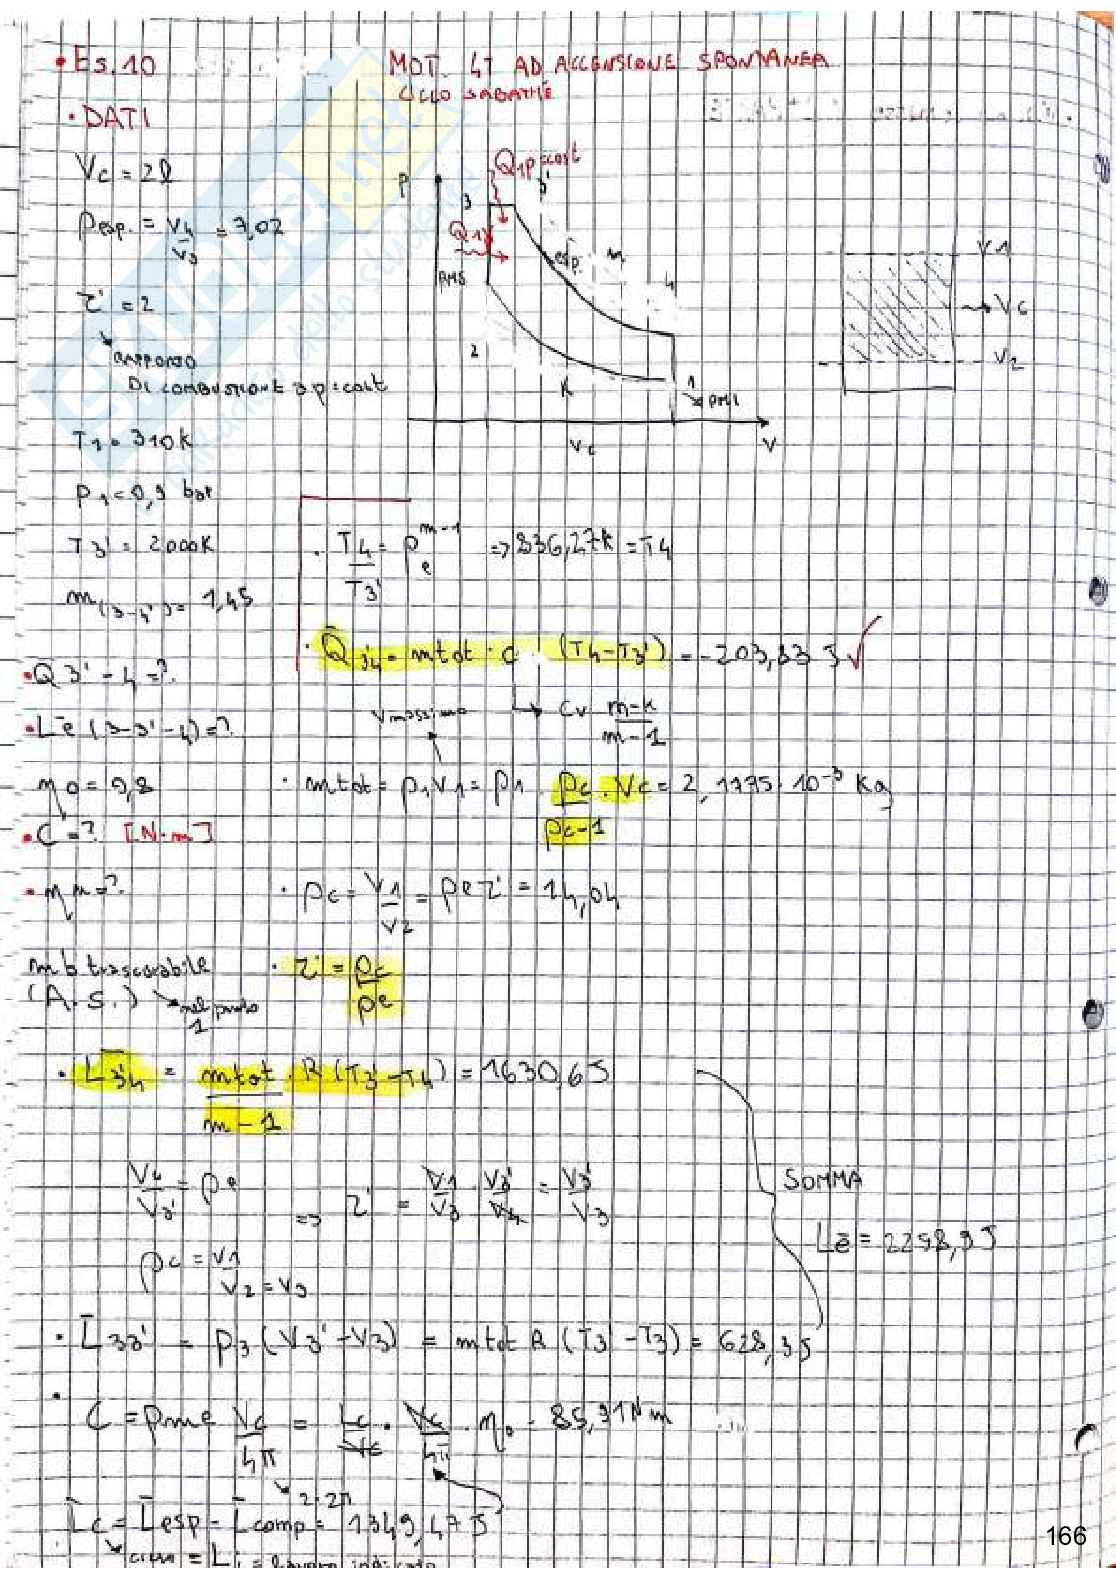 • Es. 10
MOT. 4T AD ACCENSIONE SPONTANEA
CICLO SABATHÉ
• DATI
Vc = 2l
ρesp. = V4/V3' = 7,02
τ' = 2
RAPPORTO
DI COMBUSTIONE a p = cost
T1 = 310K
P1 = 0,9 bar
T3' = 2000K
m(3-4') = 1,45
• Q3'-4 = ?
• Le (3-3'-4) = ?
ηo = 0,8
• C = ? [N·m]
• ηu = ?
mb trascurabile
(A.S.) nel punto
1
P
Q1p=cost
3
3'
Q1
esp.
m
PMS
4
2
K
1
PMI
Vc
V
V1
Vc
V2
• T4/T3' = ρe^m-1 => 836,27K = T4
• Q3'4 = mtot · c · (T4-T3') = -203,83 J √
Vmassimo
cv m-k/m-1
• mtot = p1V1 = p1 · ρc/ρc-1 · Vc = 2,1775·10^-3 Kg
• ρc = V1/V2 = ρe τ' = 14,04
• τ' = ρc/ρe
• L3'4 = mtot/m-1 · R (T3'-T4) = 1630,6 J
V4/V3' = ρe => τ' = V1/V3 · V3'/V4 = V3'/V3
ρc = V1/V2=V3
SOMMA
Le = 2258,9 J
• L33' = p3 (V3'-V3) = mtot R (T3'-T3) = 628,3 J
• C = pme Vc/4π = Lc/Vc · Vc/4π · ηo = 85,91 Nm
2·2π
Lc = Lesp - Lcomp = 1349,47 J
= Li = lavoro indicato
166